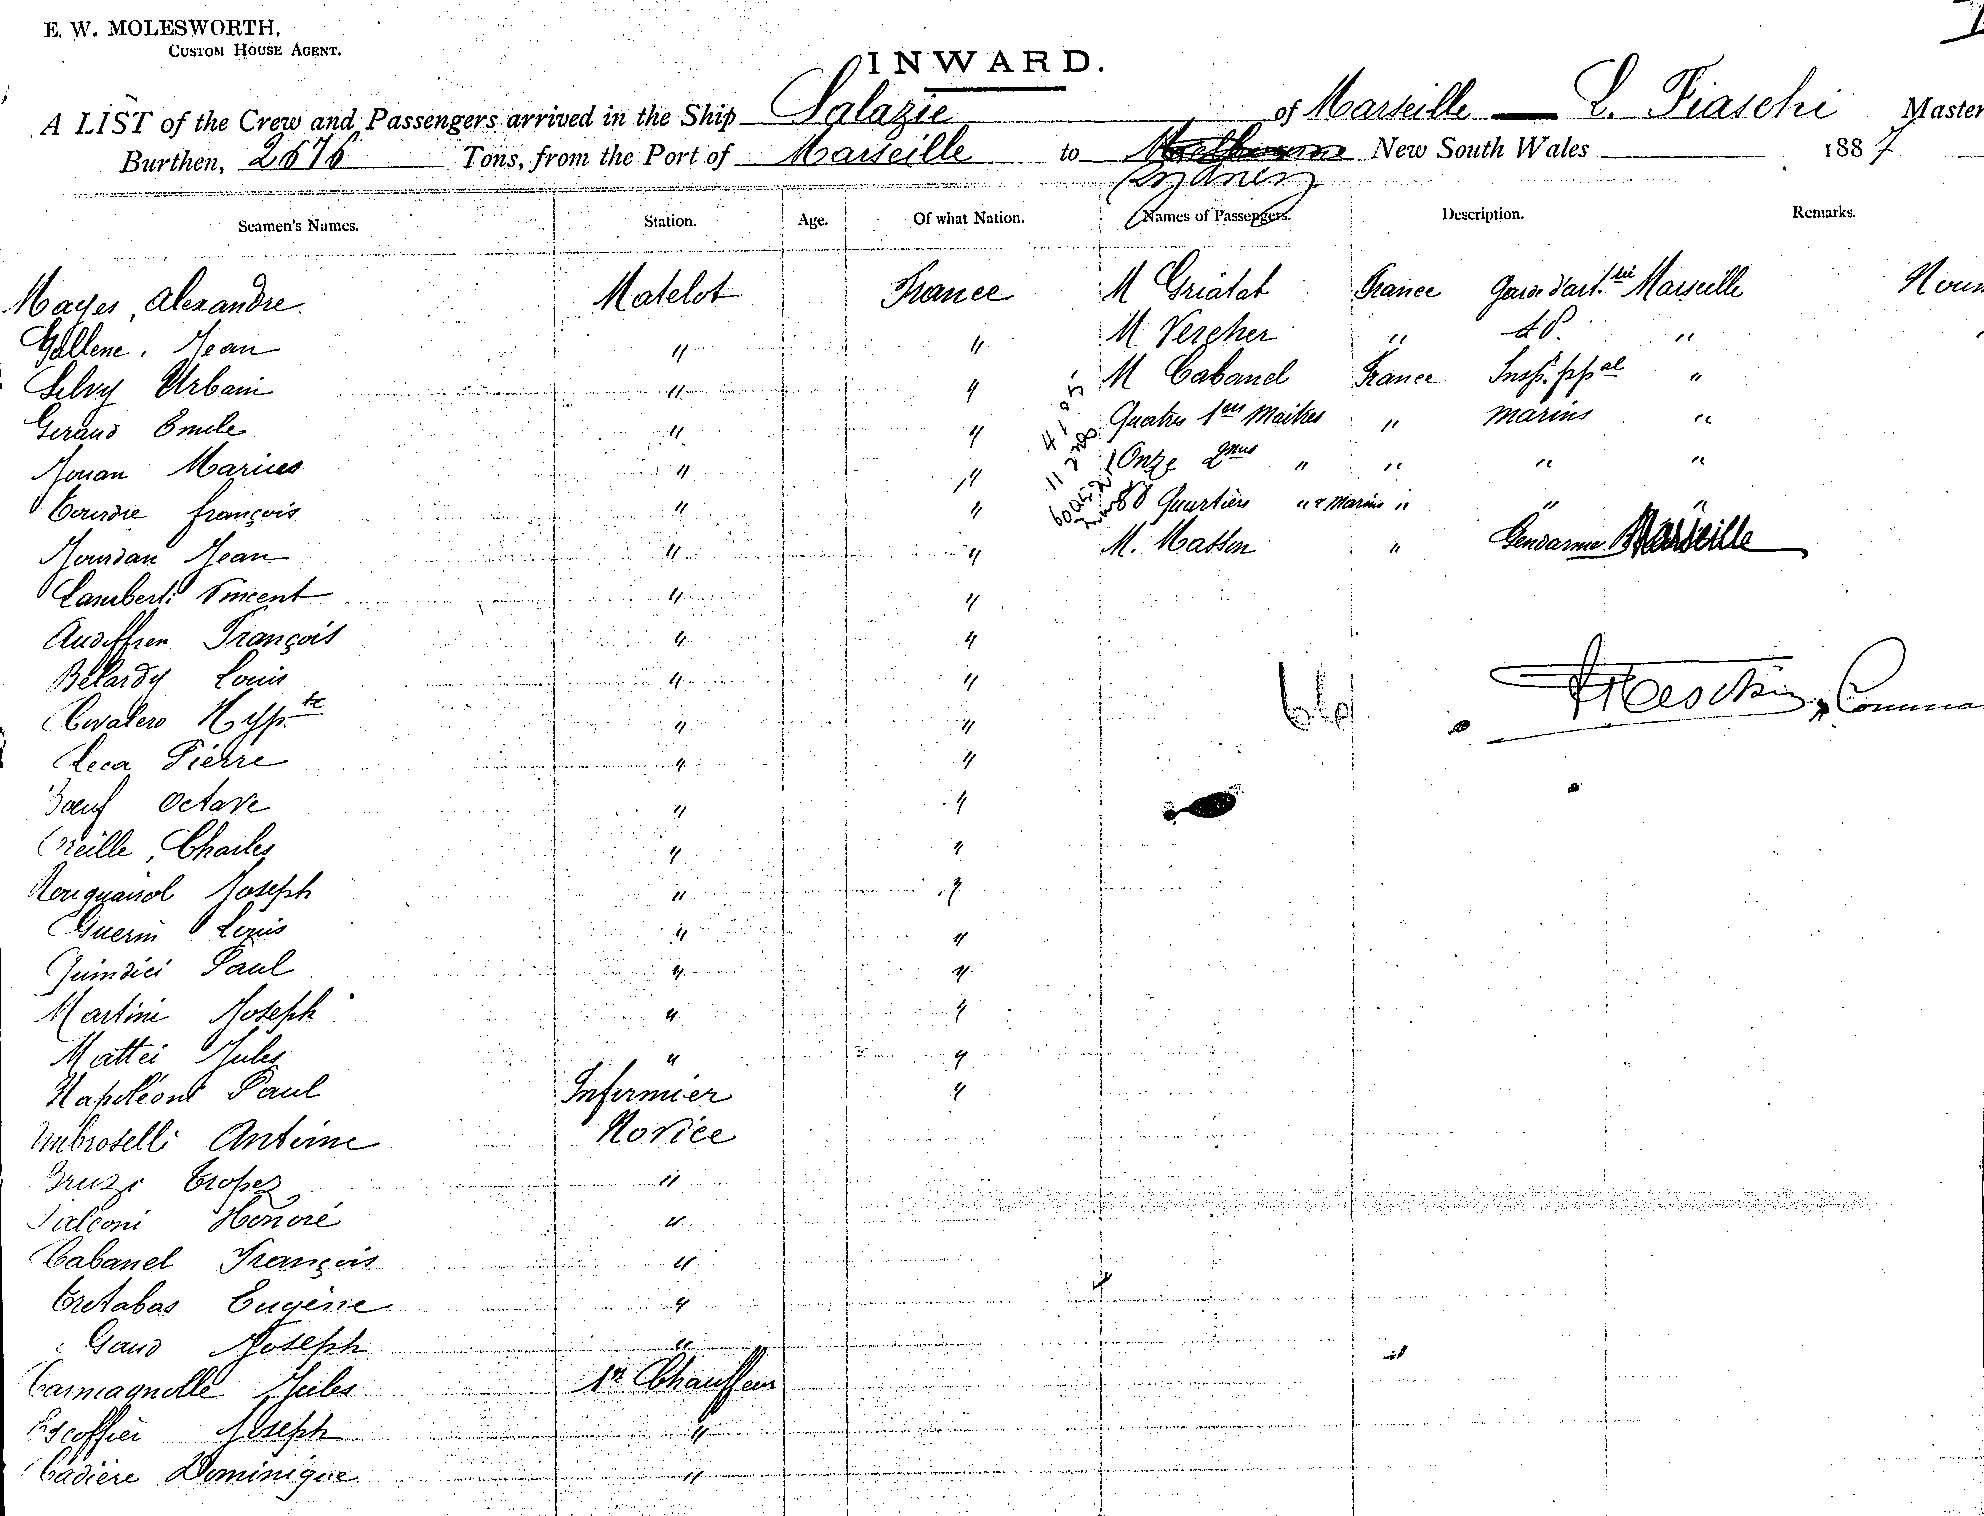 E. W. MOLESWORTH,
CUSTOM HOUSE AGENT.
INWARD.
A LIST of the Crew and Passengers arrived in the Ship Salazie of Marseille — L. Fiaschi Master
Burthen, 2676 Tons, from the Port of Marseille to Melbourne New South Wales 1887
Sydney
Seamen's Names. Station. Age. Of what Nation. Names of Passengers. Description. Remarks.
Mayes, Alexandre Matelot France M Griatat France Marseille
Gallene, Jean " " M Vercher " " "
Selvy Urbain " " M Cabanel France Insp. ppal "
Geraud Emile " " Quatres 1ers Maitres " marins "
Jouan Marius " " Onze 2mes " " " "
Tourdre françois " " 80 Quartiers " & Marins " " "
Jourdan Jean " " M. Masson " Gendarme Marseille
Lamberti Vincent " "
Audiffren François " "
Bélardy Louis " "
Civalero Hyp.te " "
Leca Pierre " " 66
Bœuf Octave " "
Oreille, Charles " "
Rouquairol Joseph " "
Guerin Louis " "
Quindici Paul " "
Martini Joseph " "
Mattei Jules " "
Napoléoni Paul Infirmier "
Ambroselli Antoine Novice
Bruzi Tropez "
Falconi Honoré "
Cabanel François "
Cretabas Eugène "
Gaud Joseph "
Carmagnolle Jules 1er Chauffeur
Escoffier Joseph "
Cadière Dominique "